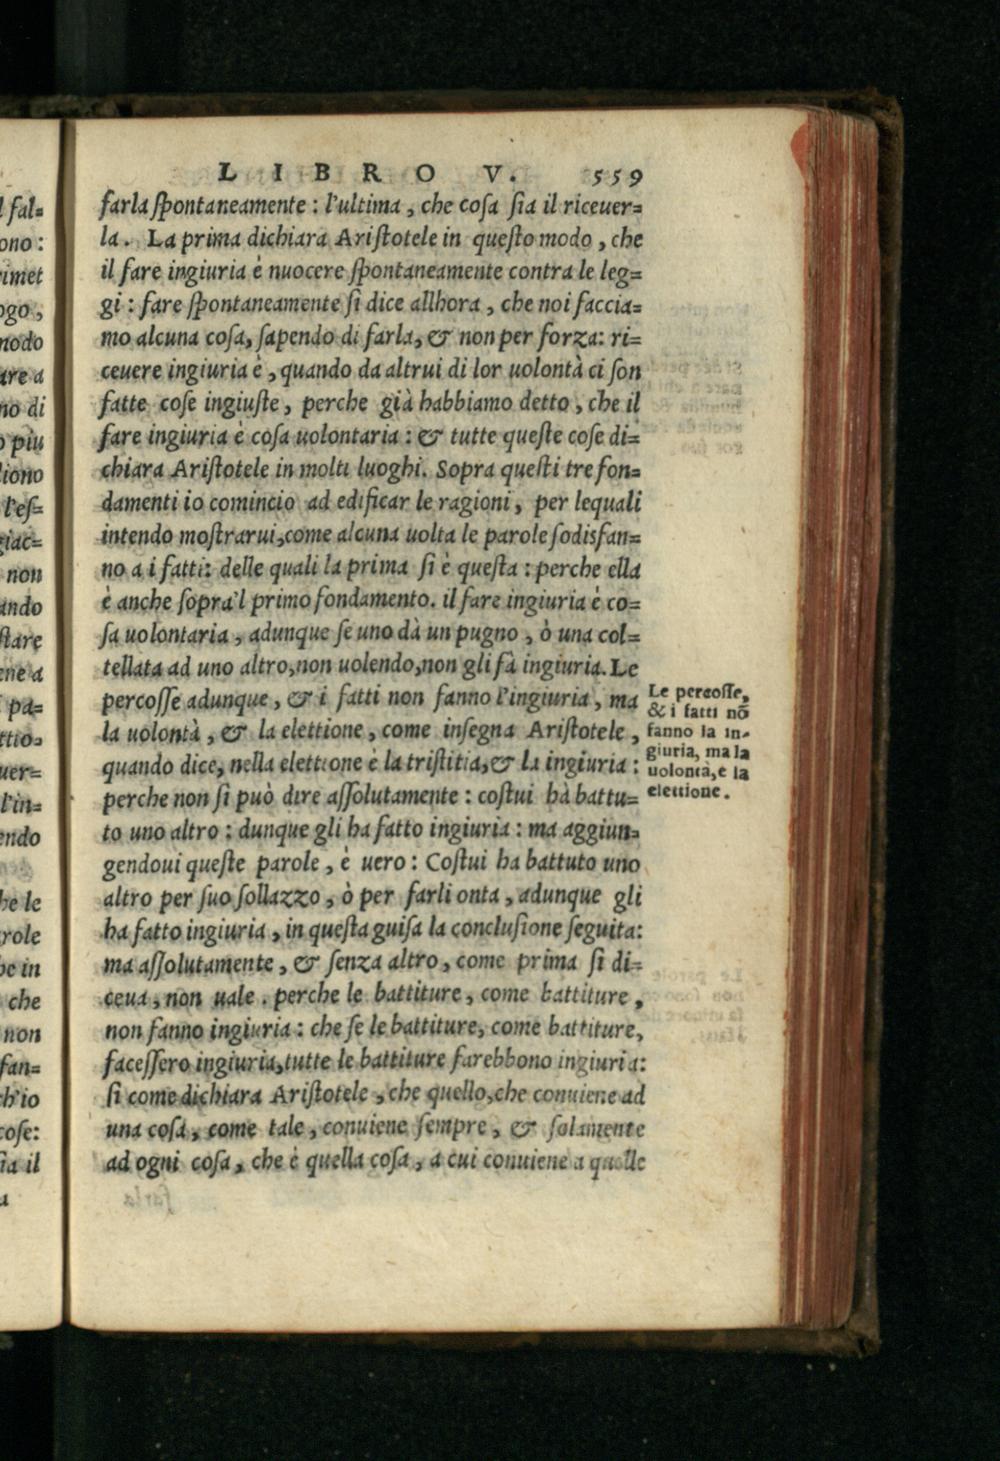 LIBRO V. 559
farla ſpontaneamente : l'ultima , che coſa ſia il riceuer=
la. La prima dichiara Ariſtotele in queſto modo , che
il fare ingiuria è nuocere ſpontaneamente contra le leg=
gi : fare ſpontaneamente ſi dice allhora , che noi faccia=
mo alcuna coſa, ſapendo di farla, & non per forza: ri=
ceuere ingiuria è , quando da altrui di lor uolontà ci ſon
fatte coſe ingiuſte, perche già habbiamo detto , che il
fare ingiuria è coſa uolontaria : & tutte queſte coſe di=
chiara Ariſtotele in molti luoghi. Sopra queſti tre fon=
damenti io comincio ad edificar le ragioni, per lequali
intendo moſtrarui,come alcuna uolta le parole ſodisfan=
no a i fatti: delle quali la prima ſi è queſta : perche ella
è anche ſopra'l primo fondamento. il fare ingiuria è co=
ſa uolontaria , adunque ſe uno dà un pugno , ò una col=
tellata ad uno altro,non uolendo,non gli fà ingiuria. Le
percoſſe adunque , & i fatti non fanno l'ingiuria, ma
la uolontà , & la elettione, come inſegna Ariſtotele ,
quando dice, nella elettione è la triſtitia,& la ingiuria :
perche non ſi può dire aſſolutamente : coſtui hà battu=
to uno altro : dunque gli ha fatto ingiuria : ma aggiun=
gendoui queſte parole , è uero : Coſtui ha battuto uno
altro per ſuo ſollazzo, ò per farli onta , adunque gli
ha fatto ingiuria , in queſta guiſa la concluſione ſeguita:
ma aſſolutamente , & ſenza altro, come prima ſi di=
ceua , non uale . perche le battiture, come battiture ,
non fanno ingiuria : che ſe le battiture, come battiture,
faceſſero ingiuria,tutte le battiture farebbono ingiuria:
ſi come dichiara Ariſtotele , che quello,che conuiene ad
una coſa, come tale, conuiene ſempre, & ſolamente
ad ogni coſa, che è quella coſa , a cui conuiene a quelle
Le percoſſe,
& i fatti nō
fanno la in-
giuria, ma la
uolontà, e la
elettione.
l fal=
ono :
imet
ogo ,
modo
are a
no di
o piu
liono
l'eſ=
giac=
non
ando
ſtare
ene a
pa=
ttio=
uer=
l'in=
endo
he le
role
he in
che
non
fan=
h'io
coſe:
ſia il